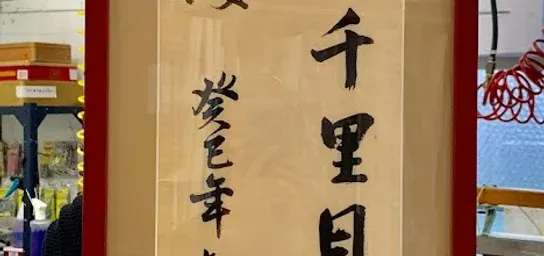 千里目
癸巳年